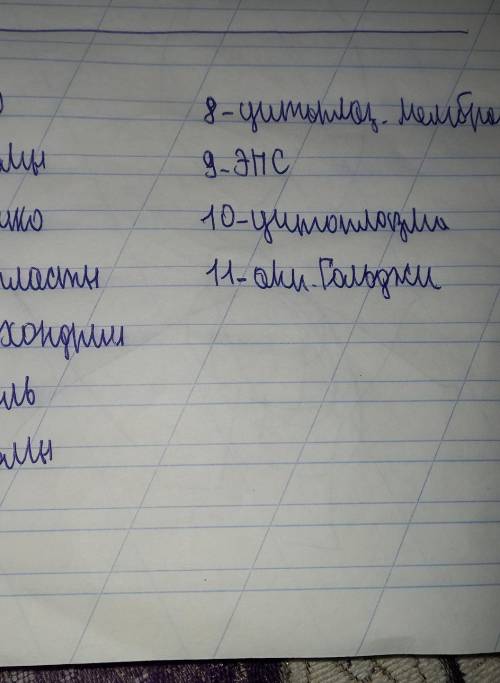 о
мы
ико
пласты
хондрии
ль
омы
8-цитоплаз. мембра
9-ЭПС
10-цитоплазма
11-апп. Гольджи